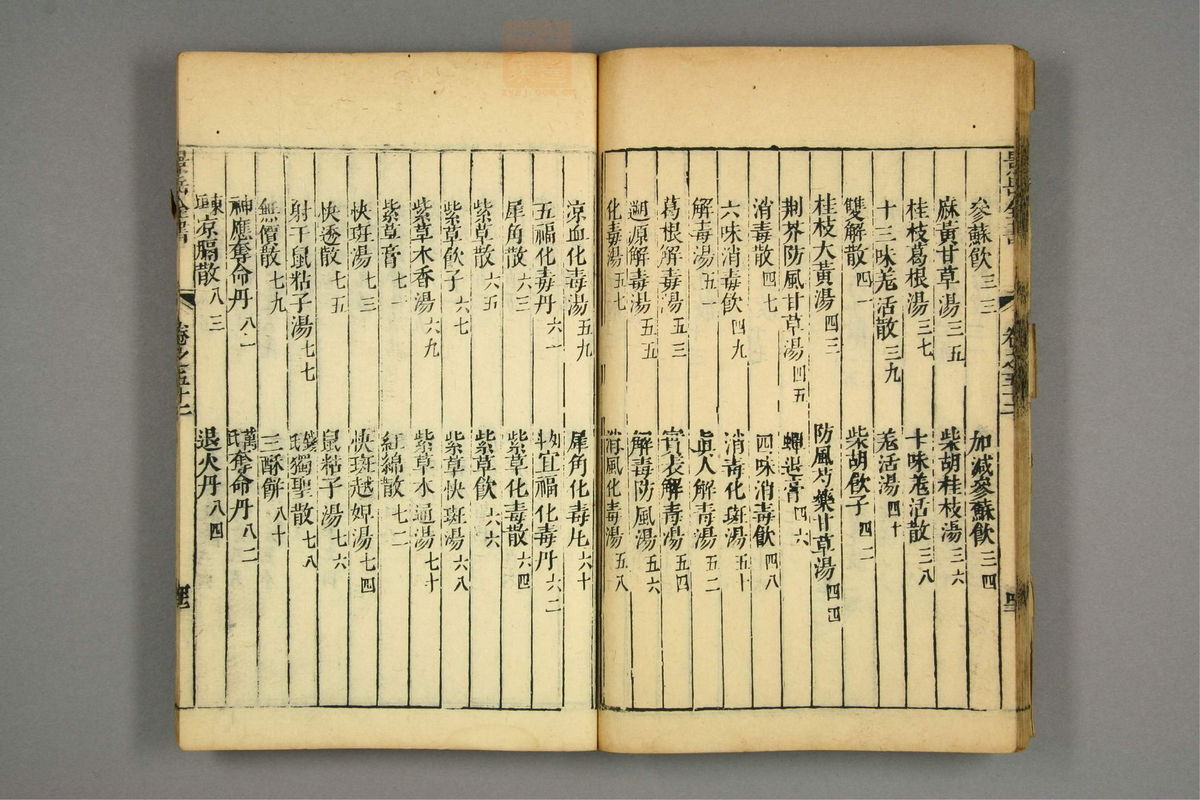 參蘇飲三三　加減參蘇飲三四
麻黃甘草湯三五　柴胡桂枝湯三六
桂枝葛根湯三七　十味羗活散三八
十三味羗活散三九　羗活湯四十
雙解散四一　柴胡飲子四二
桂枝大黃湯四三　防風芍藥甘草湯四四
荆芥防風甘草湯四五　蟬退膏四六
消毒散四七　四味消毒飲四八
六味消毒飲四九　消毒化斑湯五十
解毒湯五一　眞人解毒湯五二
葛根解毒湯五三　實表解毒湯五四
遡源解毒湯五五　解毒防風湯五六
化毒湯五七　消風化毒湯五八
凉血化毒湯五九　犀角化毒丸六十
五福化毒丹六一　宜福化毒丹六二
犀角散六三　紫草化毒散六四
紫草散六五　紫草飲六六
紫草飲子六七　紫草快斑湯六八
紫草木香湯六九　紫草木通湯七十
紫草膏七一　紅綿散七二
快斑湯七三　快斑越婢湯七四
快透散七五　鼠粘子湯七六
射干鼠粘子湯七七　錢氏獨聖散七八
無價散七九　三酥餅八十
神應奪命丹八一　萬氏奪命丹八二
凉膈散八三　退火丹八四
景岳全書　卷之五十二